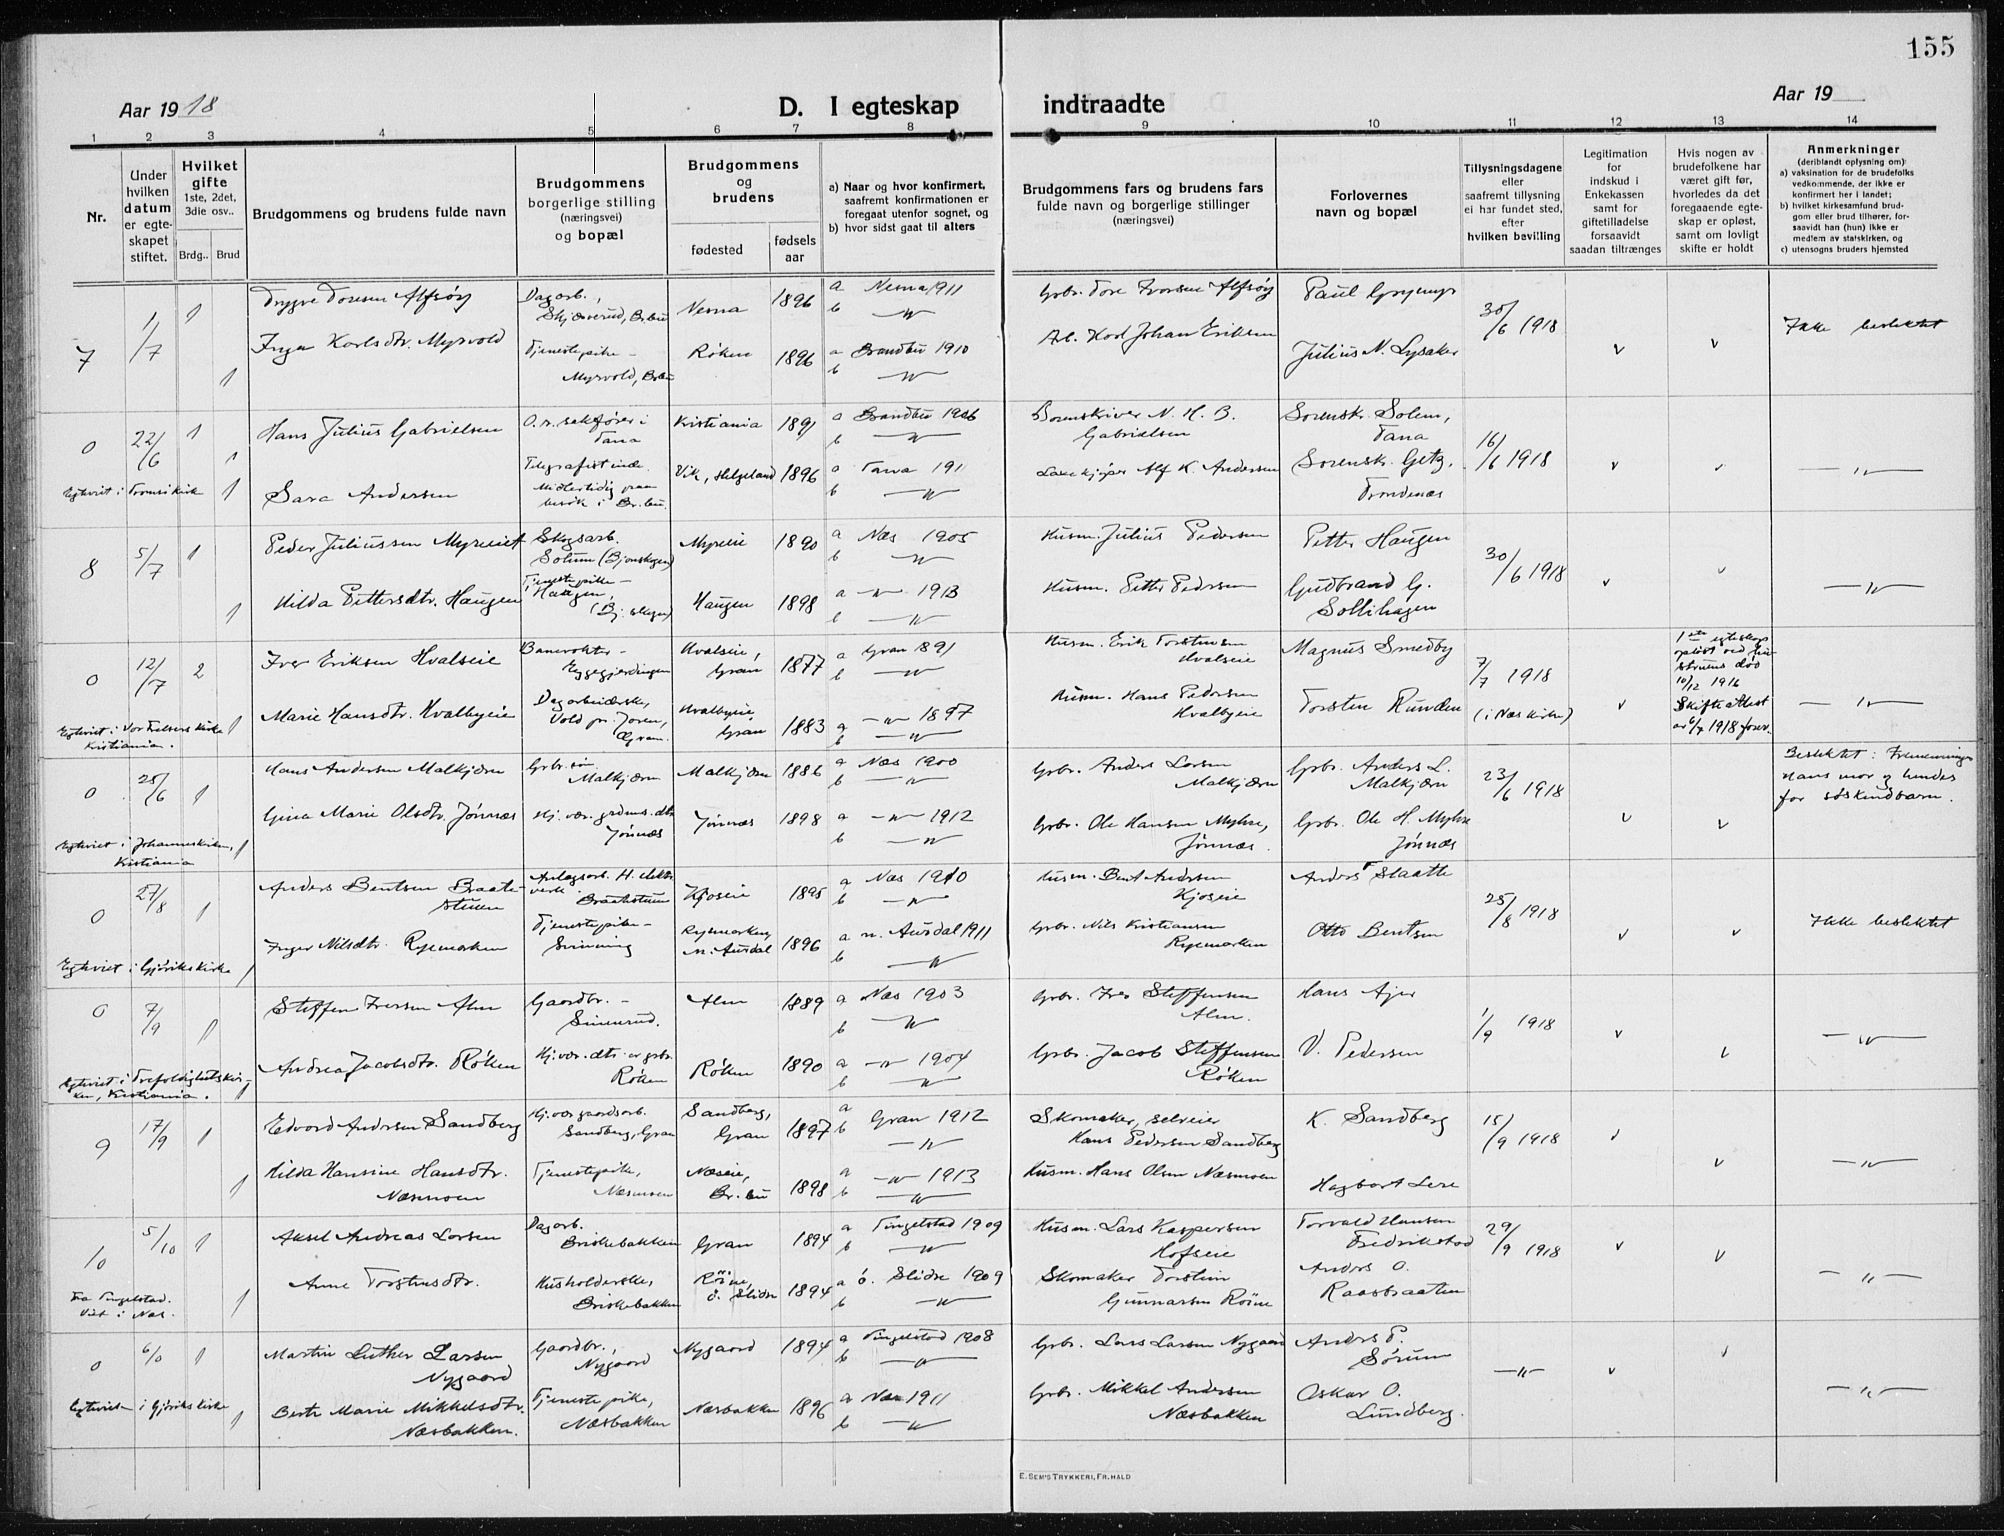 155
Aar 1918
D. I egteskap indtraadte
Aar 19
1 2 3 4 5 6 7 8 9 10 11 12 13 14
Nr.
Under hvilken datum er egteskapet stiftet.
Hvilket gifte
1ste, 2det, 3die osv..
Brdg.. Brud
Brudgommens og brudens fulde navn
Brudgommens borgerlige stilling (næringsvei) og bopæl
Brudgommens og brudens
fødested
fødsels aar
a) Naar og hvor konfirmert, saafremt konfirmationen er foregaat utenfor sognet, og
b) hvor sidst gaat til alters
Brudgommens fars og brudens fars fulde navn og borgerlige stillinger (næringsvei)
Forlovernes navn og bopæl
Tillysningsdagene eller saafremt tillysning ei har fundet sted, efter hvilken bevilling
Legitimation for indskud i Enkekassen samt for giftetilladelse forsaavidt saadan tiltrænges
Hvis nogen av brudefolkene har været gift før, hvorledes da det foregaaende egteskap er opløst, samt om lovligt skifte er holdt
Anmerkninger
(deriblandt oplysning om):
a) vaksination for de brudefolks vedkommende, der ikke er konfirmert her i landet;
b) hvilket kirkesamfund brudgom eller brud tilhører, forsaavidt han (hun) ikke er medlem av statskirken, og
c) utensogns bruders hjemsted
7 1/7 1 Trygve Toresen Alfsøy Dagarb., Skjæverud, Br.bu Nesna 1896 a Nesna 1911 b —"—
Paul 30/6 1918 Ikke beslektet
1 Inga Karlsdtr. Myrvold Tjenestepike – Myrvold, Br.bu Røken 1896 a Brandbu 1910 b —"—
Ab. Karl Johan Eriksen Julius N. Lysaker
0 22/6 1 Hans Julius Gabrielsen O.r. sakfører i Tana Kristiania 1891 a Brandbu 1906 b —"—
Sorenskriver N. H. B. Gabrielsen Sorenskr. Solem, Tana 16/6 1918 —"—
Egteviet i Tromsø kirk 1 Sara Andersen Telegrafistinde. Midlertidig paa besøk i Br.bu. Vik, Helgeland 1896 a Tana 191 b —"—
Alf K. Andersen Sorenskr. Getz, Trondenæs
8 5/7 1 Peder Juliussen Myreiet Skogsarb. Solum (Bjonskogen) Myreie 1890 a Næs 1905 b —"—
Husm. Julius Pedersen Petter Haugen 30/6 1918
1 Hilda Pettersdtr. Haugen Tjenestepike – Haugen, (Bj. skogen) Haugen 1898 a —"— 1913 b —"—
Husm. Petter Pedersen Gudbrand G. Sollihagen —"—
0 12/7 2 Iver Eriksen Hvalseie Banevokter – Eggegjerdingen Hvalseie, Gran 1877 a Gran 891 b —"—
Husm. Erik Torstensen Hvalseie Magnus Smedby 7/7 1918 (i Næs kirke)
1ste egteskap opløst ved hustruens død 10/12 1916 Skifteattest av 6/7 1918 forev.
Egteviet i Vor Frelsers kirke Kristiania. 1 Marie Hansdtr. Hvalbyeie Dagarbeiderske, Vold pr. Jaren, Gran. Hvalbyeie, Gran 1883 a —"— 1897 b —"—
Husm. Hans Pedersen Hvalbyeie Torsten Runden —"—
0 25/6 1 Hans Andersen Malkjærn Grbr. søn Malkjærn Malkjærn 1886 a Næs 1900 b —"—
Grbr. Anders Larsen Malkjærn Grbr. Anders L. Malkjærn 23/6 1918
Beslektet: Fremmings hans mor og hendes far søskendbarn.
Egteviet i Johanneskirken, Kristiania 1 Gina Marie Olsdtr. Jønnæs Hj. vær. grdms. dtr. Jønnæs Jønnæs 1898 a —"— 1912 b —"—
Grbr. Ole Hansen Myhre, Jønnæs. Grbr. Ole H. Myhre Jønnæs
0 27/8 1 Anders Bentsen Braatestuen Anlægsarb. H. elektr. verk. Braatestuen Kjoseie 1895 a Næs 1910 b —"—
Husm. Bent Andersen Kjoseie Anders Slaatte 25/8 1918 Ikke beslektet
Egteviet i Gjøviks kirke 1 Inger Nilsdtr. Ryemarken Tjenestepike – Svinning Ryemarken, n. Aurdal 1896 a n. Aurdal 1911 b —"—
Grbr. Nils Kristiansen Ryemarken Otto Bentsen
0 7/9 1 Steffen Iversen Alm Gaardbr. – Simerud. Alm 1889 a Næs 1903 b —"—
Grbr. Iver Steffensen Alm. Hans Ajer 1/9 1918
Egteviet i Trefoldighetskirken, Kristiania. 1 Andrea Jacobsdtr. Røken Hj. vær. dtr. av grbr. Røken Røken 1890 a —"— 1904 b —"—
Grbr. Jacob Steffensen Røken V. Pedersen —"—
9 17/9 1 Edvard Andersen Sandberg Hj. vær gaardsarb. Sandberg, Gran Sandberg, Gran 1897 a b Gran 1912 —"—
Skomaker, selveier Hans Pedersen Sandberg K. Sandberg 15/9 1918
1 Hilda Hansine Hansdtr. Næsmoen Tjenestepike, Næsmoen Næseie, Br.bu 1898 a —"— 1913 b —"—
Husm. Hans Olsen Næsmoen Hagbart Lere —"—
10 5/10 1 Aksel Andreas Larsen Dagarb. Briskebakken Gran 1894 a Tingelstad 1909 b —"—
Husm. Lars Kaspersen Hofseie Torvald Hansen Fredrikstad 29/9 1918
Fra Tingelstad. Viet i Næs. 1 Anne Torstensdtr. Husholderske, Briskebakken Røine, ø. Slidre 1894 a ø. Slidre 1909 b —"—
Skomaker Torstein Gunnarsen Røine Anders O. Raasbraaten —"—
0 6/10 1 Martin Luther Larsen Nygaard Gaardbr., Nygaard Nygaard 1894 a Tingelstad 1908 b —"—
Grbr. Lars Larsen Nygaard Anders P. Sørum —"—
Egteviet i Gjøviks kirke 1 Berte Marie Mikkelsdtr. Næsbakken. Tjenestepike, Næsbakken Næsbakken 1896 a Næs 1911 b —"—
Grbr. Mikkel Andersen Næsbakken Oskar O. Lundberg. —"—
E. SEM'S TRYKKERI, FR.HALD